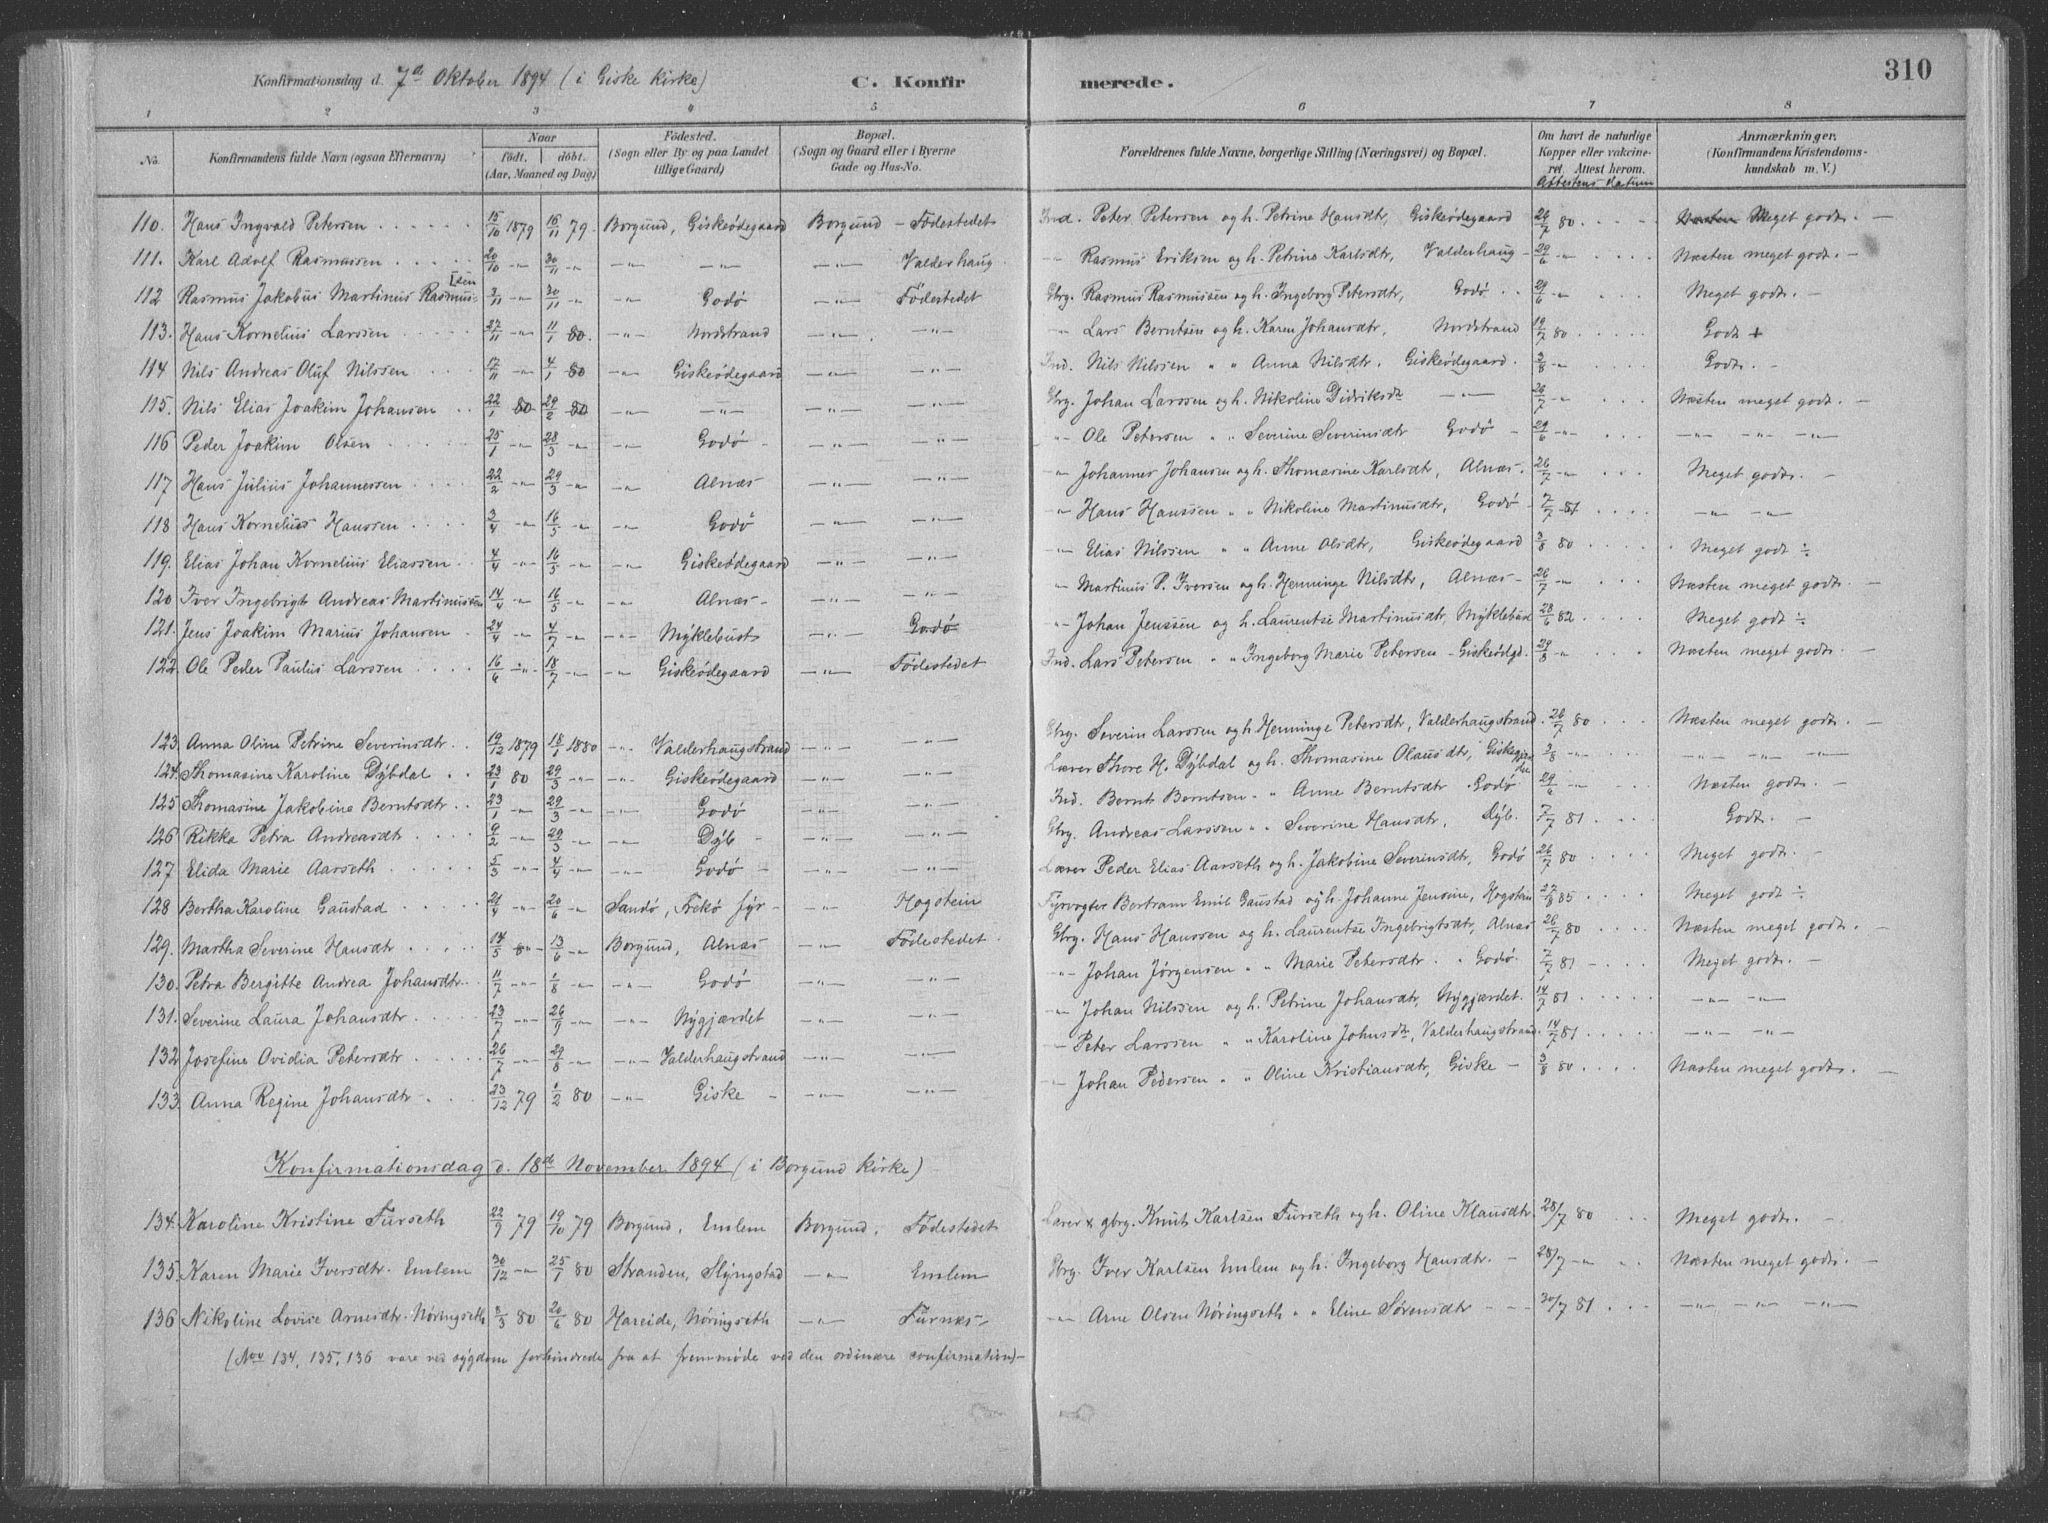 310
Konfirmationsdag d. 7de Oktober 1894 (i Giske Kirke) C. Konfirmerede.
1 2 3 4 5 6 7 8
No. Konfirmandens fulde Navn (ogsaa Efternavn) Naar født. døbt. (Aar, Maaned og Dag) Fødested. (Sogn eller By og paa Landet tillige Gaard) Bopæl. (Sogn og Gaard eller i Byerne Gade og Hus-No. Forældrenes fulde Navne, borgerlige Stilling (Næringsvei) og Bopæl. Om havt de naturlige Kopper eller vakcineret. Attest herom. Attestens Datum Anmærkninger. (Konfirmandens Kristendomskundskab m. V.)
110. Hans Ingvald Petersen 15/10 1879 16/11 79. Borgund, Giskeødegaard Borgund - Fødestedet Ind. Peter Petersen og h. Petrine Hansdtr, Giskeødegaard 26/7 80 Næsten Meget godt. -
111. Karl Adolf Rasmussen 20/10 -"- 30/11 -"- -"- -"- -"- Valderhaug -"- Rasmus Eriksen og h. Petrine Karlsdtr, Valderhaug 29/6 -"- Næsten meget godt. -
112 Rasmus Jakobus Martinus Rasmussen 3/11 -"- 30/11 -"- -"- Godø -"- Fødestedet Gbrg. Rasmus Rasmussen og h. Ingeborg Petersdtr, Godø 29/6 -"- Meget godt. -
113. Hans Kornelius Larssen 27/11 -"- 11/1 80. -"- Nordstrand -"- -"- -"- Lars Berntsen og h. Karen Johansdtr, Nordstrand 19/7 80 Godt +
114 Nils Andreas Oluf Nilssen 17/11 -"- 4/1 80 -"- Giskeødegaard -"- -"- Ind. Nils Nilssen " " Anna Nilsdtr. Giskeødegaard. 3/8 -"- Godt. -
115. Nils Elias Joakim Johansen 22/1 80 29/2 80 -"- -"- -"- -"- Gbrg. Johan Larssen og h. Nikoline Didriksdtr -"- 26/7 -"- Næsten meget godt. -
116 Peder Joakim Olsen 25/1 -"- 28/3 -"- -"- Godø -"- -"- -"- Ole Petersen " " Severine Severinsdtr Godø 29/6 -"- -"- -"- -"-
117 Hans Julius Johannessen 22/2 -"- 29/3 -"- -"- Alnæs -"- -"- -"- Johannes Johansen og h. Thomasine Karlsdtr, Alnæs. 26/7 -"- Meget godt. -
118 Hans Kornelius Hanssen 3/4 -"- 16/5 -"- -"- Godø -"- -"- -"- Hans Hanssen " " Nikoline Martinusdtr, Godø 7/7 81 -"- -"-
119. Elias Johan Kornelius Eliassen 4/4 -"- 16/5 -"- -"- Giskeødegaard -"- -"- -"- Elias Nilssen " " Anne Olsdtr, Giskeødegaard 3/8 80 Meget godt ÷
120 Iver Ingebrigt Andreas Martinussen 14/4 -"- 16/5 -"- -"- Alnæs -"- -"- -"- Martinus P. Iversen og h. Henninge Nilsdtr, Alnæs 26/7 -"- Næsten meget godt. -
121. Jens Joakim Marius Johansen 24/4 -"- 4/7 -"- -"- Myklebust -"- Godø -"- Johan Jenssen og h. Laurentse Martinusdtr, Myklebust 28/6 82 Meget godt ÷
122. Ole Peder Paulus Larssen 16/6 -"- 18/7 -"- -"- Giskeødegaard -"- Fødestedet Ind. Lars Petersen " " Ingeborg Marie Petersen - Giskeødgd. 29/8 -"- Næsten meget godt. -
123. Anna Oline Petrine Severinsdtr 19/12 1879 18/1 1880 -"- Valderhaugstrand -"- -"- Gbrg. Severin Larssen og h. Henninge Petersdtr, Valderhaugstrand. 26/7 80 Næsten meget godt. -
124. Thomasine Karoline Dybdal 23/1 80 29/3 -"- -"- Giskeødegaard -"- -"- Lærer Thore H. Dybdal og h. Thomasine Olausdtr, 3/8 -"- -"- -"- -"-
125 Thomasine Jakobine Berntsdtr 23/1 -"- 29/3 -"- -"- Godø -"- -"- Ind. Bernt Berntsen " " Anne Berntsdtr Godø 29/6 -"- Næsten godt. -
126 Rikka Petra Andreasdtr 9/2 -"- 29/3 -"- -"- Dyb -"- -"- Gbrg. Andreas Larssen " " Severine Hansdtr, Dyb. 7/7 81 Godt. -
127 Elida Marie Aarseth 5/3 -"- 4/4 -"- -"- Godø -"- -"- Lærer Peder Elias Aarseth og h. Jakobine Severinsdtr, Godø 26/7 80 Meget godt. -
128 Bertha Karoline Gaustad 21/4 -"- 20/6 -"- Sandø, Erkø fyr -"- Hogstein Fyrvogter Bertram Emil Gaustad og h. Johanne Jensine, Hogstein 27/8 85 Meget godt ÷
129. Martha Severine Hansdtr 14/5 80 13/6 -"- Borgund, Alnæs -"- Fødestedet Gbrg. Hans Hanssen og h. Laurentse Ingebrigtsdtr, Alnæs 26/7 80 Næsten meget godt. -
130. Petra Bergitte Andrea Johansdtr 11/7 -"- 1/8 -"- -"- Godø -"- -"- -"- Johan Jørgensen " " Marie Petersdtr. Godø. 7/7 81 Meget godt. -
131. Severine Laura Johansdtr 23/7 -"- 26/9 -"- -"- Nygjærdet -"- -"- -"- Johan Nilssen og h. Petrine Johansdtr, Nygjærdet. 14/7 81 -"- -"-
132 Josefine Ovidia Petersdtr 26/7 -"- 29/8 -"- -"- Valderhaugstrand -"- -"- -"- Peter Larssen " " Karoline Johnsdtr, Valderhaugstrand. 14/7 81 -"- -"-
133. Anna Regine Johansdtr 23/12 79 1/2 80 -"- Giske -"- -"- -"- Johan Pedersen " " Oline Kristiansdtr, Giske 3/8 80 Næsten meget godt. -
Konfirmationsdag d. 18de November 1894 (i Borgund Kirke)
134. Karoline Kristine Furseth 22/9 79 19/10 79 Borgund, Emlem Borgund. Fødestedet Lærer & gbrg. Knut Karlsen Furseth og h. Oline Klausdtr. 28/7 80 Meget godt. -
135. Karen Marie Iversdtr. Emlem 30/12 -"- 25/1 80 Stranden, Slyngstad -"- Emlem Gbrg. Iver Karlsen Emlem og h. Ingeborg Hansdtr. 28/7 -"- Næsten meget godt. -
136 Nikoline Lovise Arnesdtr. Nøringseth 2/5 80 20/6 80 Hareide, Nøringseth -"- Furnæs -"- Arne Olsen Nøringseth " " Eline Sørensdtr 30/7 81 -"- -"- -"-
(Nos 134, 135, 136 vare ved sygdom forhindrede fra at fremmøde ved den ordinære confirmation)-